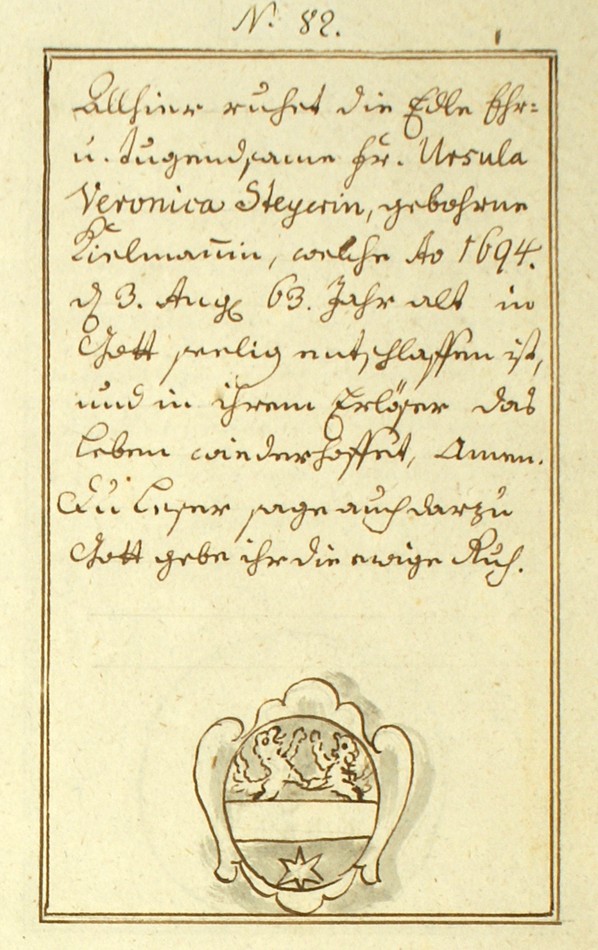 N. 82.
Allhier ruhet die Edle Ehr=
u. tugendsame Fr. Ursula
Veronica Steyerin, gebohrne
Kielmañin, welche Ao 1694.
d 3. Aug 63. Jahr alt in
Gott seelig entschlaffen ist,
und in ihrem Erlöser das
Leben wiederhoffet, Amen.
Du Leser sage auch darzu
Gott gebe ihr die ewige Ruh.